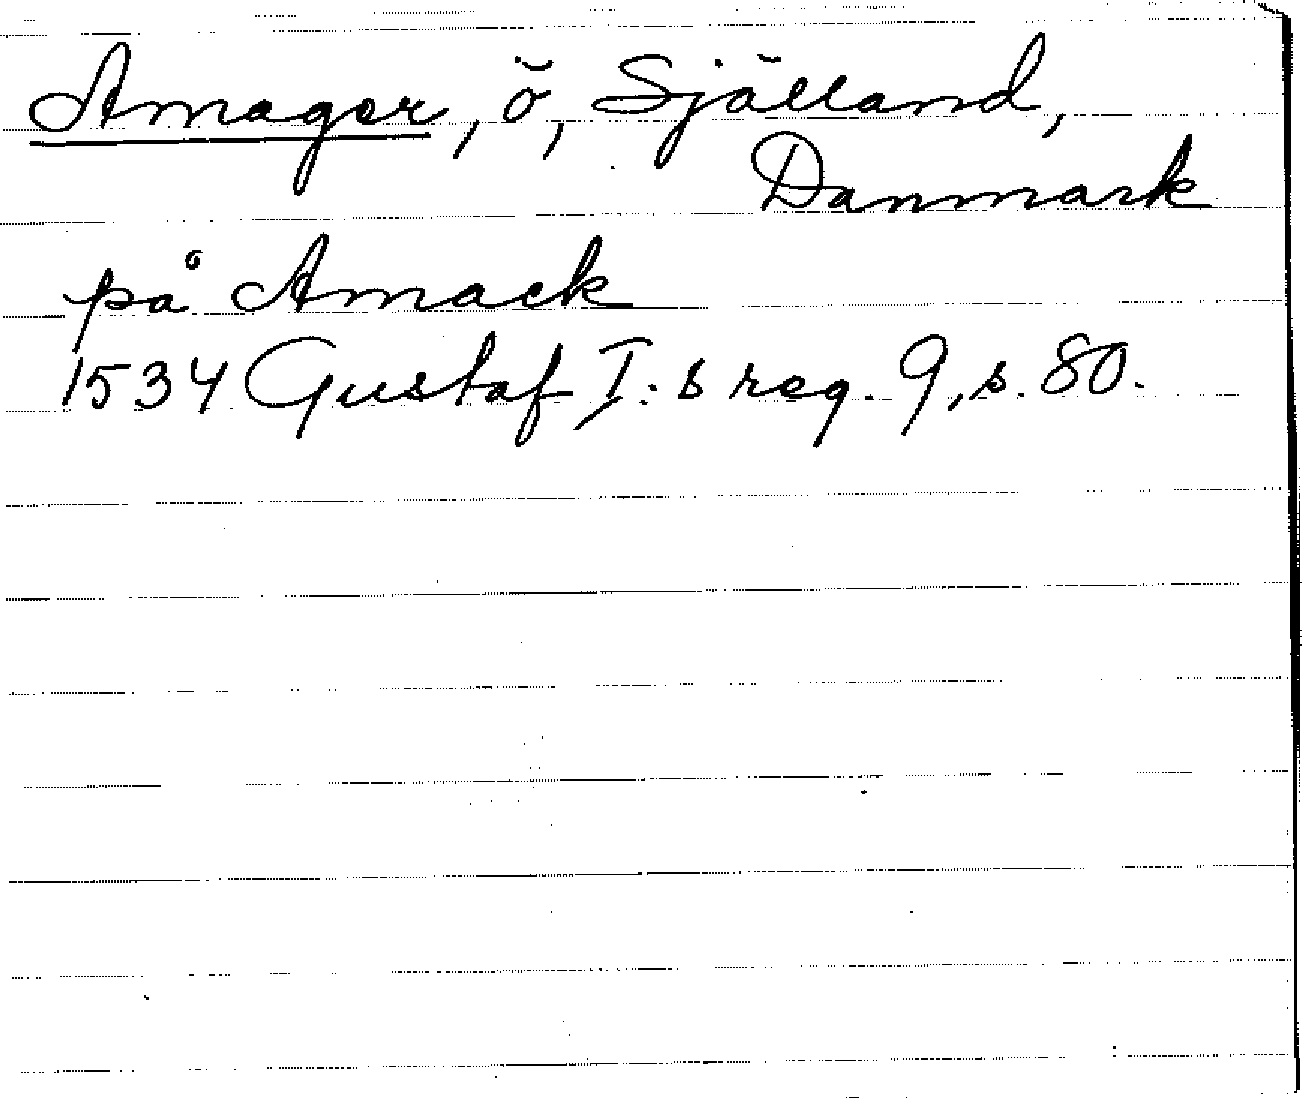 Amager, ö, Själland,
Danmark
på Amack
1534 Gustaf I:s reg. 9, s. 80.